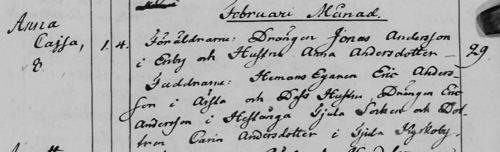 Februari Månad.
Anna Cajsa, 8.
1. 4. Föräldrarne: Drängen Jonas Andersson
i Enby och Hustru Anna Andersdotter — 29.
Faddrarne: Hemans Egaren Eric Anders-
son i och Dess Hustru, Drängen Eric
Andersson i Gjula Socken och Dot-
tren Carin Andersdotter i Gjula Kyrkoby.